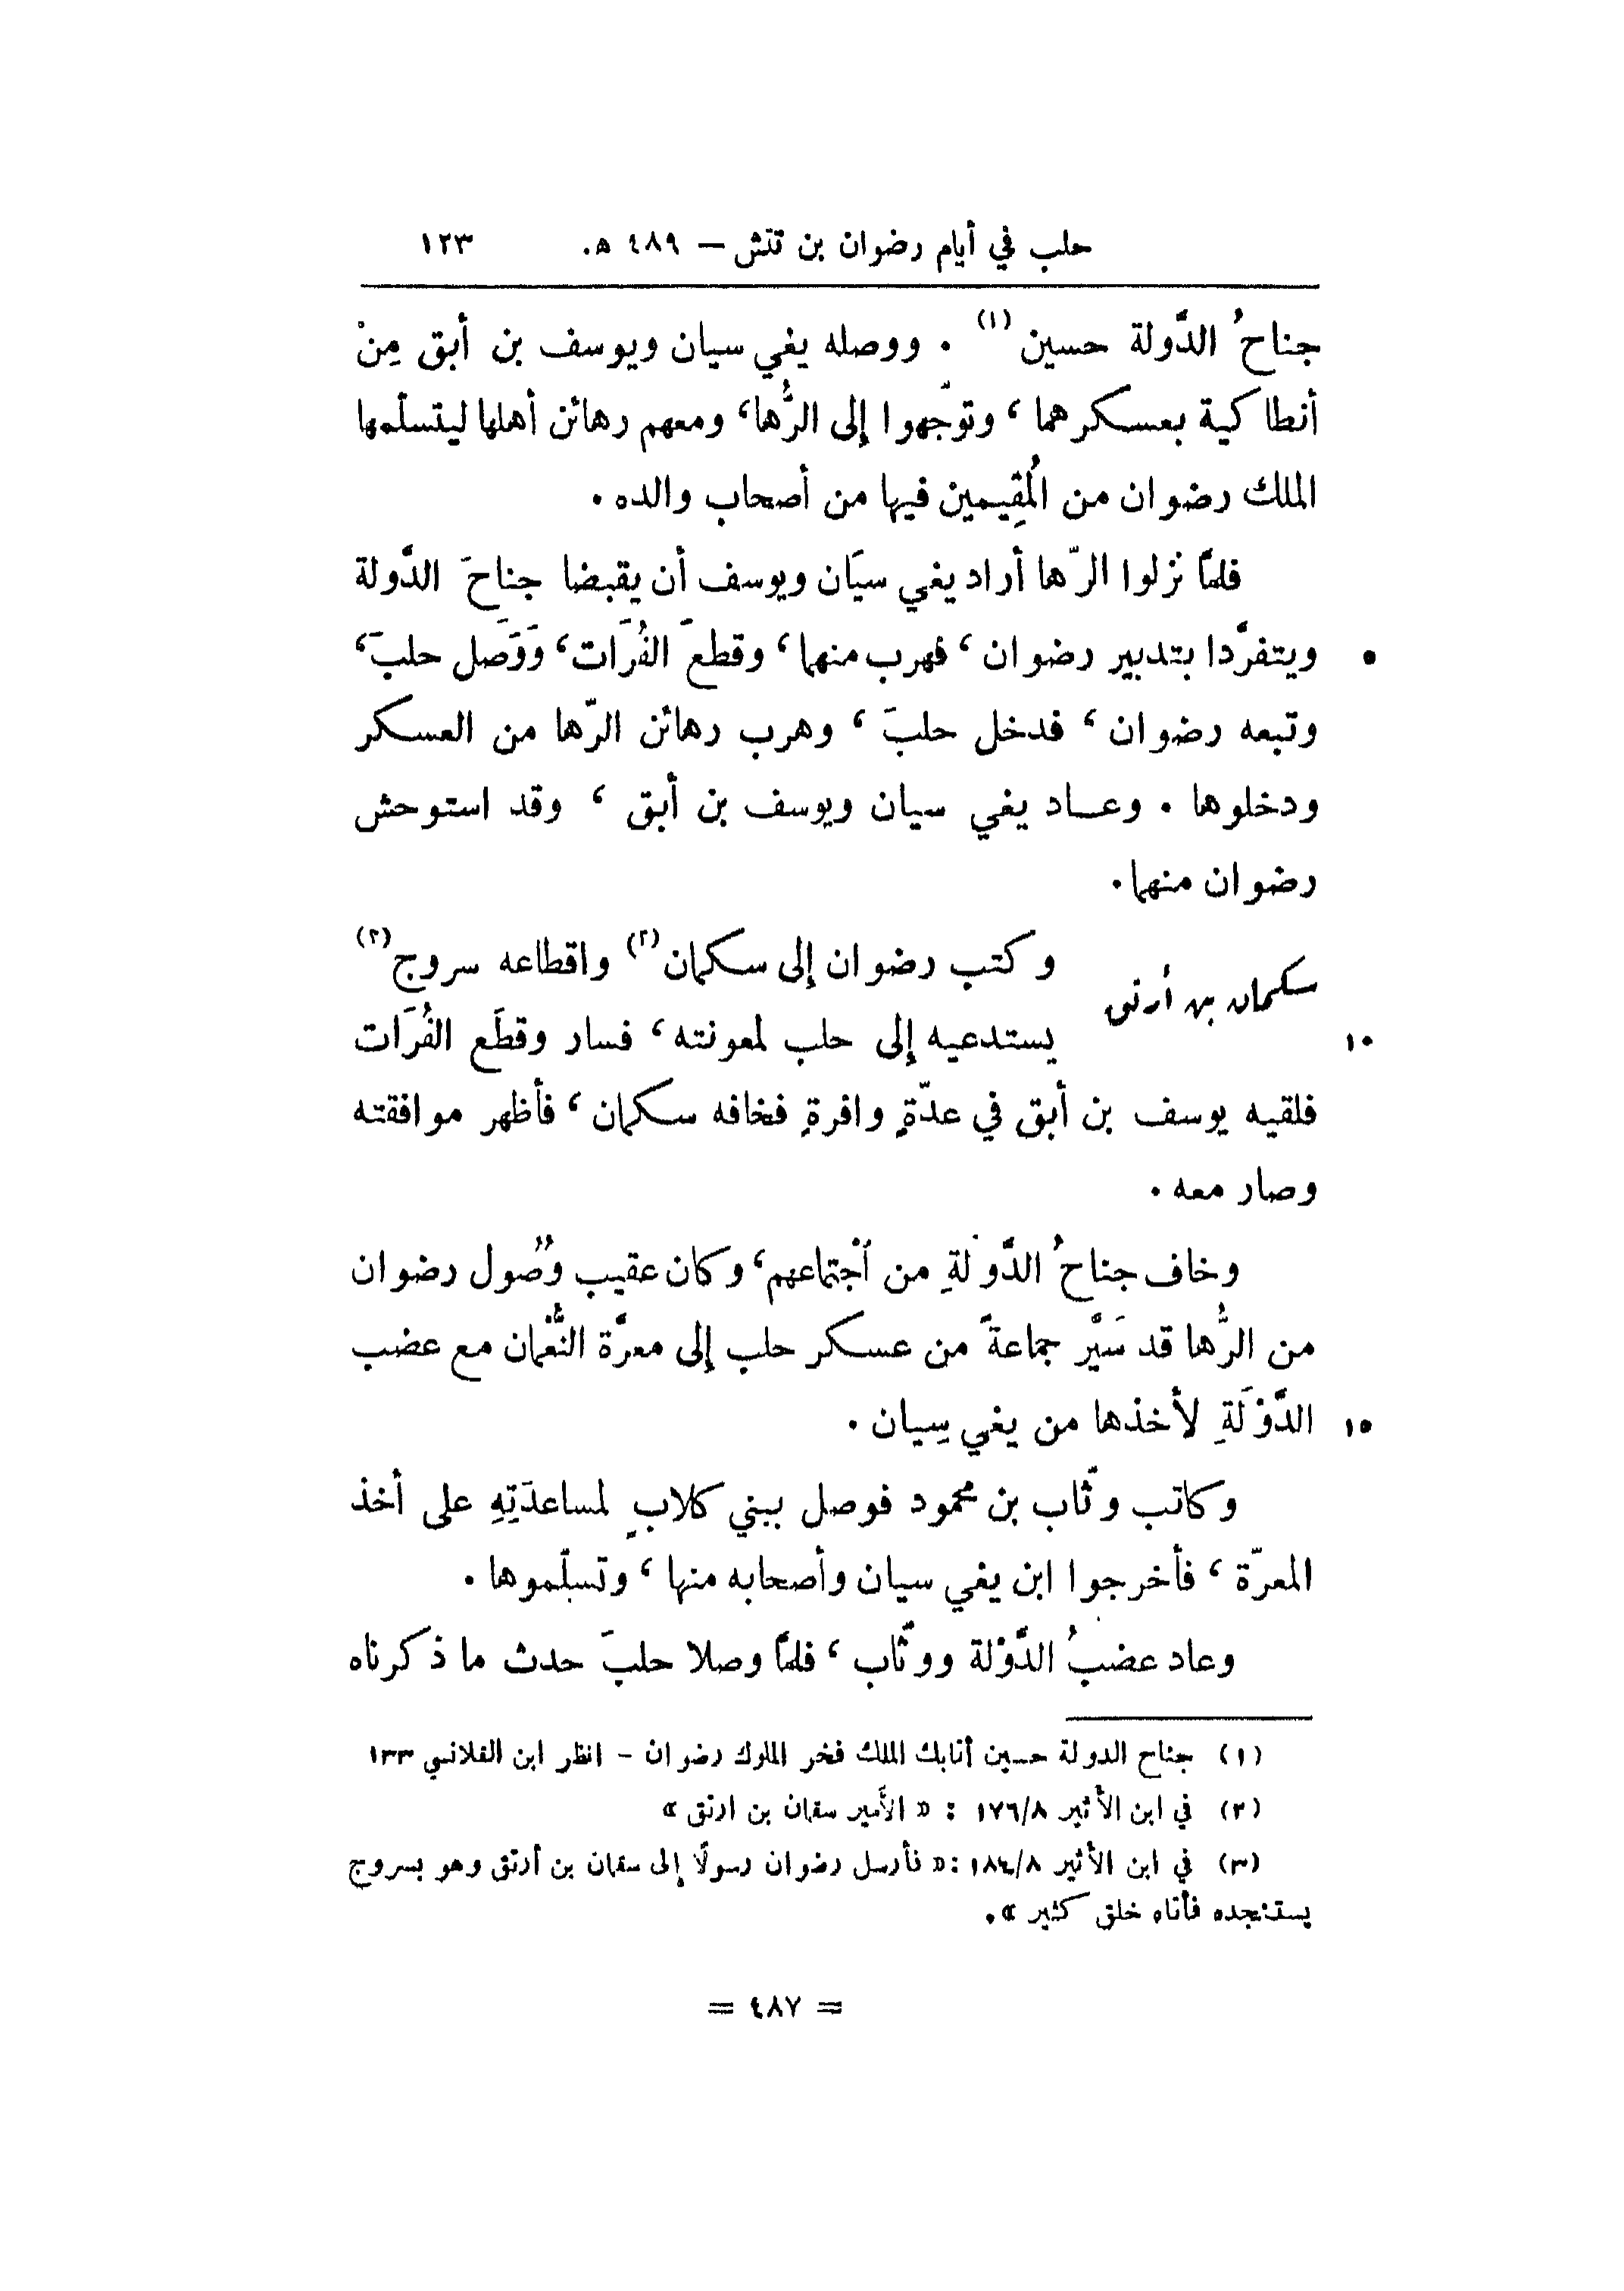 حلب في أيام رضوان بن تتش – ٤٨٩ ه. ١٢٣
جناحُ الدَّولة حسين (١) . ووصله يغي سيان ويوسف بن أبق مِنْ
أنطاكية بعسكرهما ، وتوّجهوا إلى الرُّها، ومعهم رهائن أهلها ليتسلّمها
الملك رضوان من المُقِيمين فيها من أصحاب والده .
فلمَّا نزلوا الرّها أراد يغي سيَان ويوسف أن يقبضا جناحَ الدَّولة
ويتفرَّدا بتدبير رضوان ، فهرب منهما ، وقطعَ الفُرَات، وَوَصل حلبَ، ٥
وتبعه رضوان ، فدخل حلبَ ، وهرب رهائن الرّها من العسكر
ودخلوها . وعاد يغي سيان ويوسف بن أبق ، وقد استوحش
رضوان منهما.
سكمان بن أرتق
وكتب رضوان إلى سكمان (٢) واقطاعه سروج (٣)
يستدعيه إلى حلب لمعونته ، فسار وقطَع الفُرَات ١٠
فلقيه يوسف بن أبق في عدّةٍ وافرةٍ فخافه سكمان ، فأظهر موافقته
وصار معه .
وخاف جناحُ الدَّوْلَةِ من اجْتماعهم، وكان عقيب وُصول رضوان
من الرُّها قد سَيَّر جماعةً من عسكر حلب إلى معرَّة النُّعْمان مع عضب
الدَّوْلَةِ لأخذها من يغي سِيان . ١٥
وكاتب وثّاب بن محمود فوصل ببني كلابٍ لمساعدَتِهِ على أخذ
المعرّة ، فأخرجوا ابن يغي سيان وأصحابه منها ، وتسلّموها .
وعاد عضبُ الدَّوْلة ووثّاب ، فلمَّا وصلا حلبَ حدث ما ذكرناه
(١) جناح الدولة حسين أتابك الملك فخر الملوك رضوان – انظر ابن القلانسي ١٣٣
(٢) في ابن الأثير ١٧٦/٨ : « الأمير سقمان بن ارتق »
(٣) في ابن الأثير ١٨٤/٨ : « فأرسل رضوان رسولًا إلى سقمان بن أرتق وهو بسروج
يستنجده فأتاه خلق كثير ».
= ٤٨٧ =